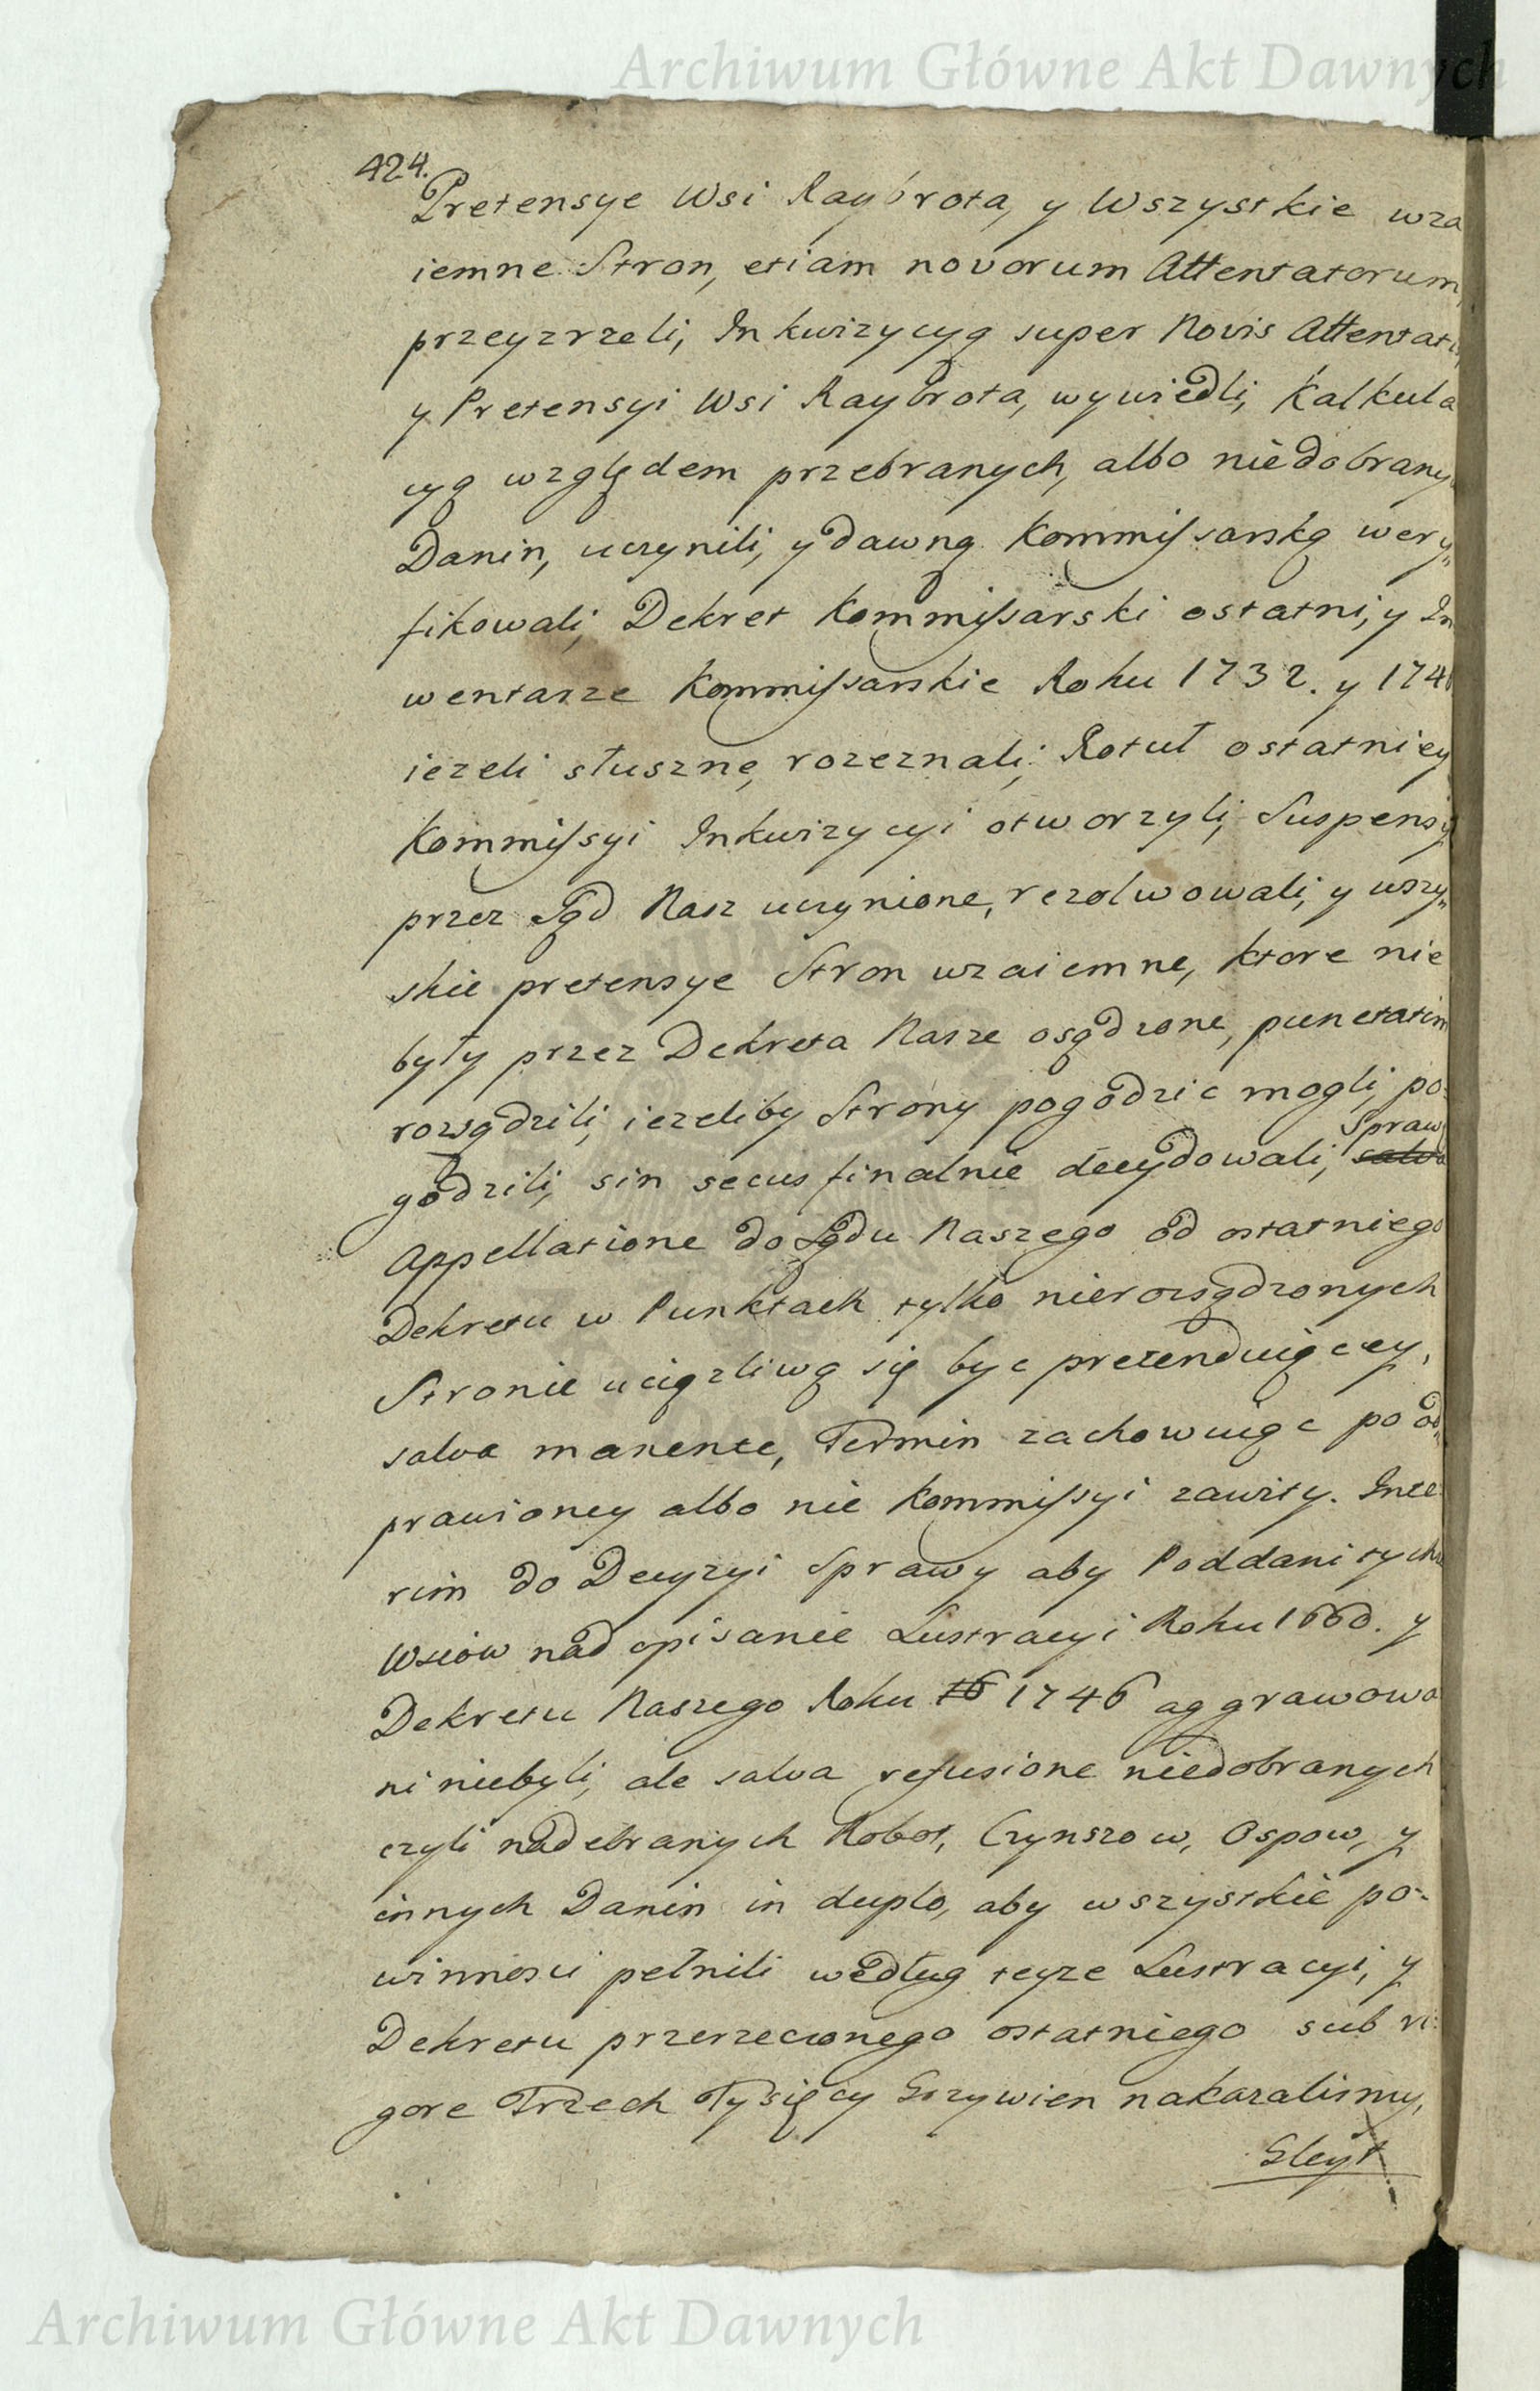 Archiwum Główne Akt Dawnych
424.
Pretensye Wsi Raybrota, y Wszystkie wza
iemne Stron, etiam novorum Attentatorum,
przeyzrzeli, Inkwizycyą super Novis Attentat
y Pretensyi Wsi Raybrota, wywiedli, Kalkula
cyą względem przebranych, albo niedobrany
Danin, uczynili, y dawną Kommissarską wery„
fikowali, Dekret Kommissarski ostatni, y In
wentarze Kommissarskie Roku 1732. y 174
ieżeli słuszne, rozeznali; Rotuł ostatniey
Kommissyi Inkwizycyi otworzyli, Suspensy
przez Sąd Nasz uczynione, rezolwowali, y wszy„
skie pretensye Stron wzaiemne, ktore nie
były przez Dekreta Nasze osądzone, punctatim
rozsądzili, ieżeliby Strony pogodzic mogli, po:
Spraw
godzili, sin secus finalnie decydowali, salva
Appellatione do Sądu Naszego od ostatniego
Dekretu w Punktach tylko nierozsądzonych
Stronie uciążliwą się byc pretenduiącey,
salva manente, Termin zachowuiąc po od„
prawioney albo nie Kommissyi zawity. Inte
rim do Decyzyi Sprawy aby Poddani tychże
Wsiow nad opisanie Lustracyi Roku 1660. y
Dekretu Naszego Roku 16 1746 aggrawowa
ni niebyli, ale salva refusione niedobranych
czyli nadebranych Robot, Czynszow, Ospow, y
innych Danin in duplo, aby wszystkie po:
winnosci pełnili według teyże Lustracyi, y
Dekretu przerzeczonego ostatniego sub vi:
gore Trzech Tysięcy Grzywien nakazalismy,
Gleyt
Archiwum Główne Akt Dawnych